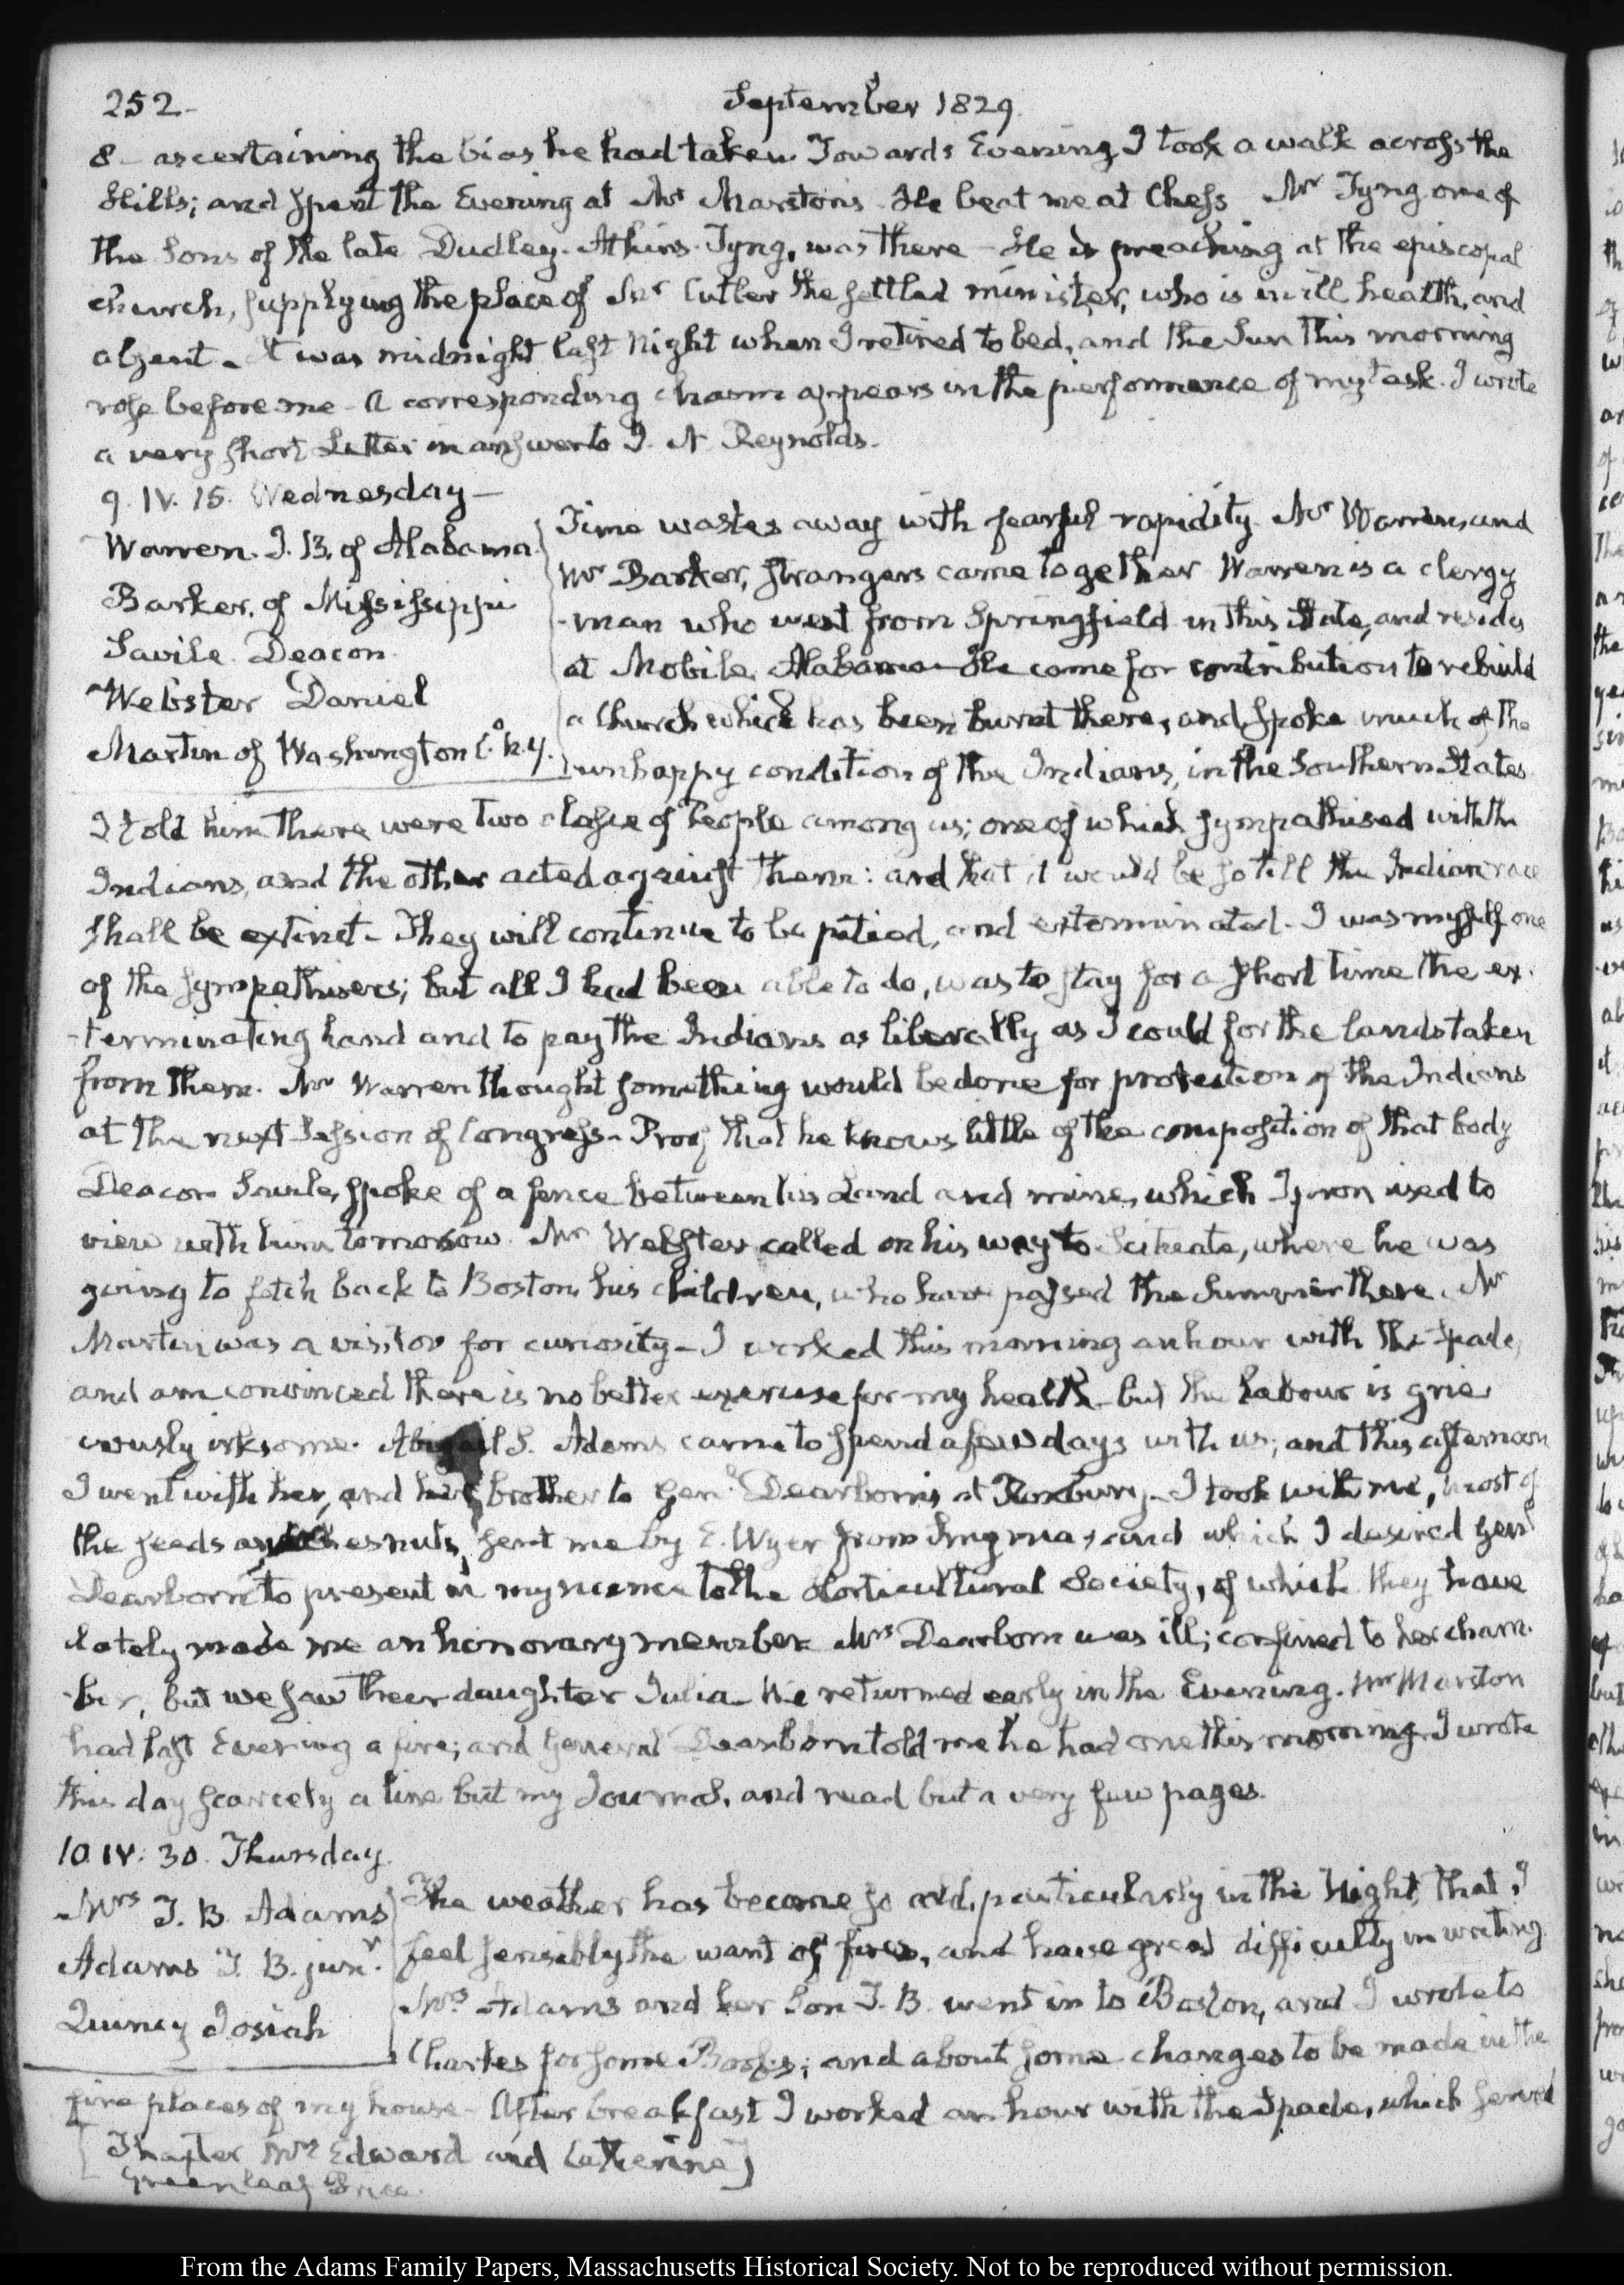 252-
September 1829.
8 - ascertaining the bias he had taken. Towards Evening I took a walk across the
Hills; and spent the Evening at Mr Marston's. He beat me at Chess Mr Tyng one of
the Sons of the late Dudley Atkins Tyng, was there - He is preaching at the episcopal
church, supplying the place of Mr Cutler the settled minister, who is in ill health, and
absent - It was midnight last Night when I retired to bed, and the Sun this morning
rose before me - A corresponding charm appears in the performance of my task. I wrote
a very short Letter in answer to J. N Reynolds.
9. IV. 15. Wednesday -
Warren. J. B. of Alabama
Barker. of Mississippi
Savile. Deacon
Webster Daniel
Martin of Washington Co. N.Y.
Time wastes away with fearful rapidity. Mr Warren, and
Mr Barker, strangers came together Warren is a clergy
-man who went from Springfield in this State, and resides
at Mobile, Alabama - He came for contribution to rebuild
a Church which has been burnt there, and spoke much of the
unhappy condition of the Indians, in the Southern States.
I told him there were two classes of People among us; one of which sympathised with the
Indians, and the other acted against them: and that it would be so till the Indian race
shall be extinct - They will continue to be pitied, and exterminated - I was myself one
of the sympathisers; but all I had been able to do, was to stay for a short time the ex-
-terminating hand and to pay the Indians as liberally as I could for the lands taken
from them. Mr Warren thought something would be done for protection of the Indians
at the next Session of Congress - Proof that he knows little of the composition of that body
Deacon Savile, spoke of a fence between his Land and mine, which I promised to
view with him tomorrow. Mr Webster called on his way to Scituate, where he was
going to fetch back to Boston his children, who have passed the Summer there. Mr
Martin was a visitor for curiosity - I worked this morning an hour with the Spade,
and am convinced there is no better exercise for my health - but the labour is grie
vously irksome. Abigail S. Adams came to spend a few days with us; and this afternoon
I went with her, and her brother to Genl. Dearborn's at Roxbury - I took with me, most of
the seeds and chesnuts, sent me by E. Wyer from Smyrna, and which I desired Genl
Dearborn to present in my name to the Horticultural Society, of which they have
lately made me an honorary member Mrs Dearborn was ill; confined to her cham-
-ber, but we saw their daughter Julia - We returned early in the Evening. Mr Marston
had last Evening a fire; and General Dearborn told me he had one this morning. I wrote
this day scarcely a line but my Journal, and read but a very few pages.
10. IV: 30. Thursday.
Mrs T. B. Adams
Adams T. B. junr.
Quincy Josiah
The weather has become so cold, particularly in the Night, that I
feel sensibly the want of fires, and have great difficulty in writing
Mrs Adams and her Son T. B. went in to Boston, and I wrote to
Charles for some Books; and about some changes to be made in the
fire places of my house - After breakfast I worked an hour with the Spade, which served
[Thaxter Mrs Edward and Catherine]
Greenleaf Price
From the Adams Family Papers, Massachusetts Historical Society. Not to be reproduced without permission.